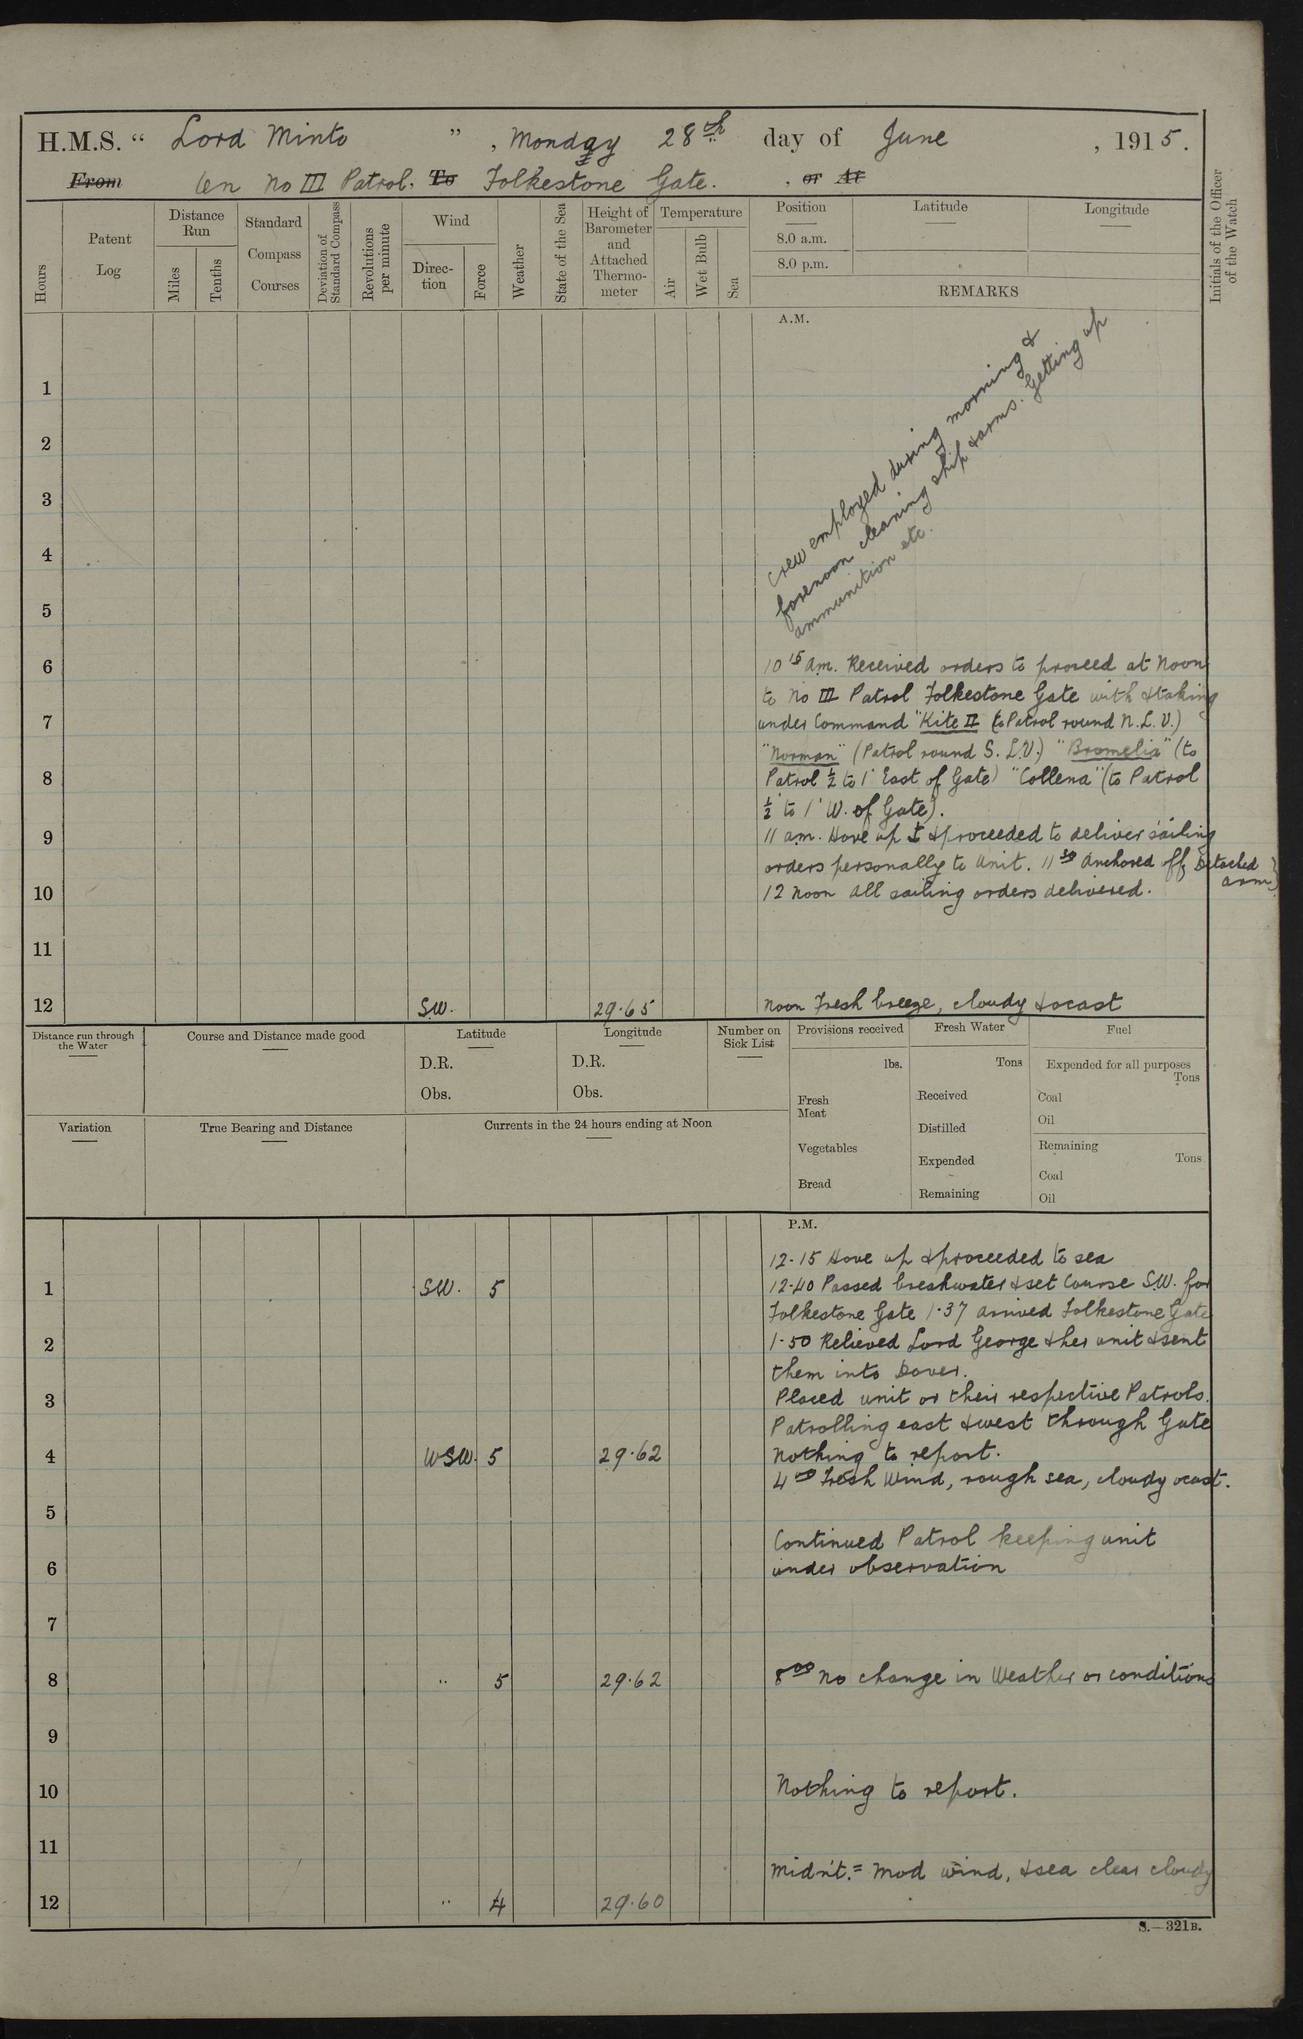 H.M.S. “ Lord Minto ”, Monday 28th day of June, 1915.
From On No III Patrol. To Folkestone Gate. , or At
Hours
Patent Log
Distance Run
Miles
Tenths
Standard Compass Courses
Deviation of Standard Compass
Revolutions per minute
Wind
Direction
Force
Weather
State of the Sea
Height of Barometer and Attached Thermometer
Temperature
Air
Wet Bulb
Sea
Position
8.0 a.m.
8.0 p.m.
Latitude
Longitude
REMARKS
Initials of the Officer of the Watch
A.M.
Crew employed during morning &
forenoon cleaning ship & arms. Getting up
ammunition etc.
1
2
3
4
5
6
10 15 Am. Received orders to proceed at Noon
to No III Patrol Folkestone Gate with & taking
7
under Command "Kite II" (to Patrol round N.L.V.)
"Norman" (Patrol round S.L.V.) "Bromelia" (to
8
Patrol ½ to 1' East of Gate) "Collena" (to Patrol
½ to 1' W. of Gate).
9
11 am. Hove up ⚓ & proceeded to deliver sailing
orders personally to Unit. 11 30 Anchored off Detached
arm)
10
12 Noon All sailing orders delivered.
11
12 S.W. 29.65 Noon Fresh breeze, cloudy & ocast
Distance run through the Water
Course and Distance made good
Latitude
D.R.
Obs.
Longitude
D.R.
Obs.
Number on Sick List
Provisions received
lbs.
Fresh Meat
Vegetables
Bread
Fresh Water
Tons
Received
Distilled
Expended
Remaining
Fuel
Expended for all purposes
Tons
Coal
Oil
Remaining
Tons
Coal
Oil
Variation
True Bearing and Distance
Currents in the 24 hours ending at Noon
P.M.
12.15 Hove up & proceeded to sea
1 SW. 5 12.40 Passed breakwater & set Course S.W. for
Folkestone Gate 1.37 arrived Folkestone Gate
2 1.50 Relieved Lord George & her unit & sent
them into Dover.
3 Placed unit on their respective Patrols.
Patrolling east & west through Gate
4 WSW. 5 29.62 Nothing to report.
4 00 Fresh Wind, rough sea, cloudy ocast.
5
Continued Patrol keeping unit
6 under observation
7
8 " 5 29.62 8 00 No change in Weather or conditions
9
10 Nothing to report.
11
Midn't. = Mod wind, & sea clear cloudy
12 " 4 29.60
S.—321B.